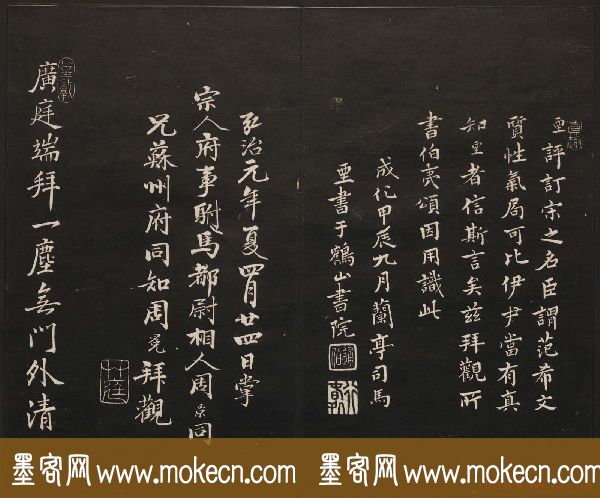 亜評訂宗之名臣謂范希文
質性氣局可比伊尹當有真
知里者信斯言矣兹拜觀所
書伯夷頌因用識此
成化甲辰九月蘭亭司馬
亜書于鶴山書院
弘治元年夏四月廿四日掌
宗人府事駙馬都尉相人周景同
兄蘇州府同知周 拜觀
廣庭端拜一塵無門外清
墨客网 www.mokecn.com
墨客网 www.mokecn.com